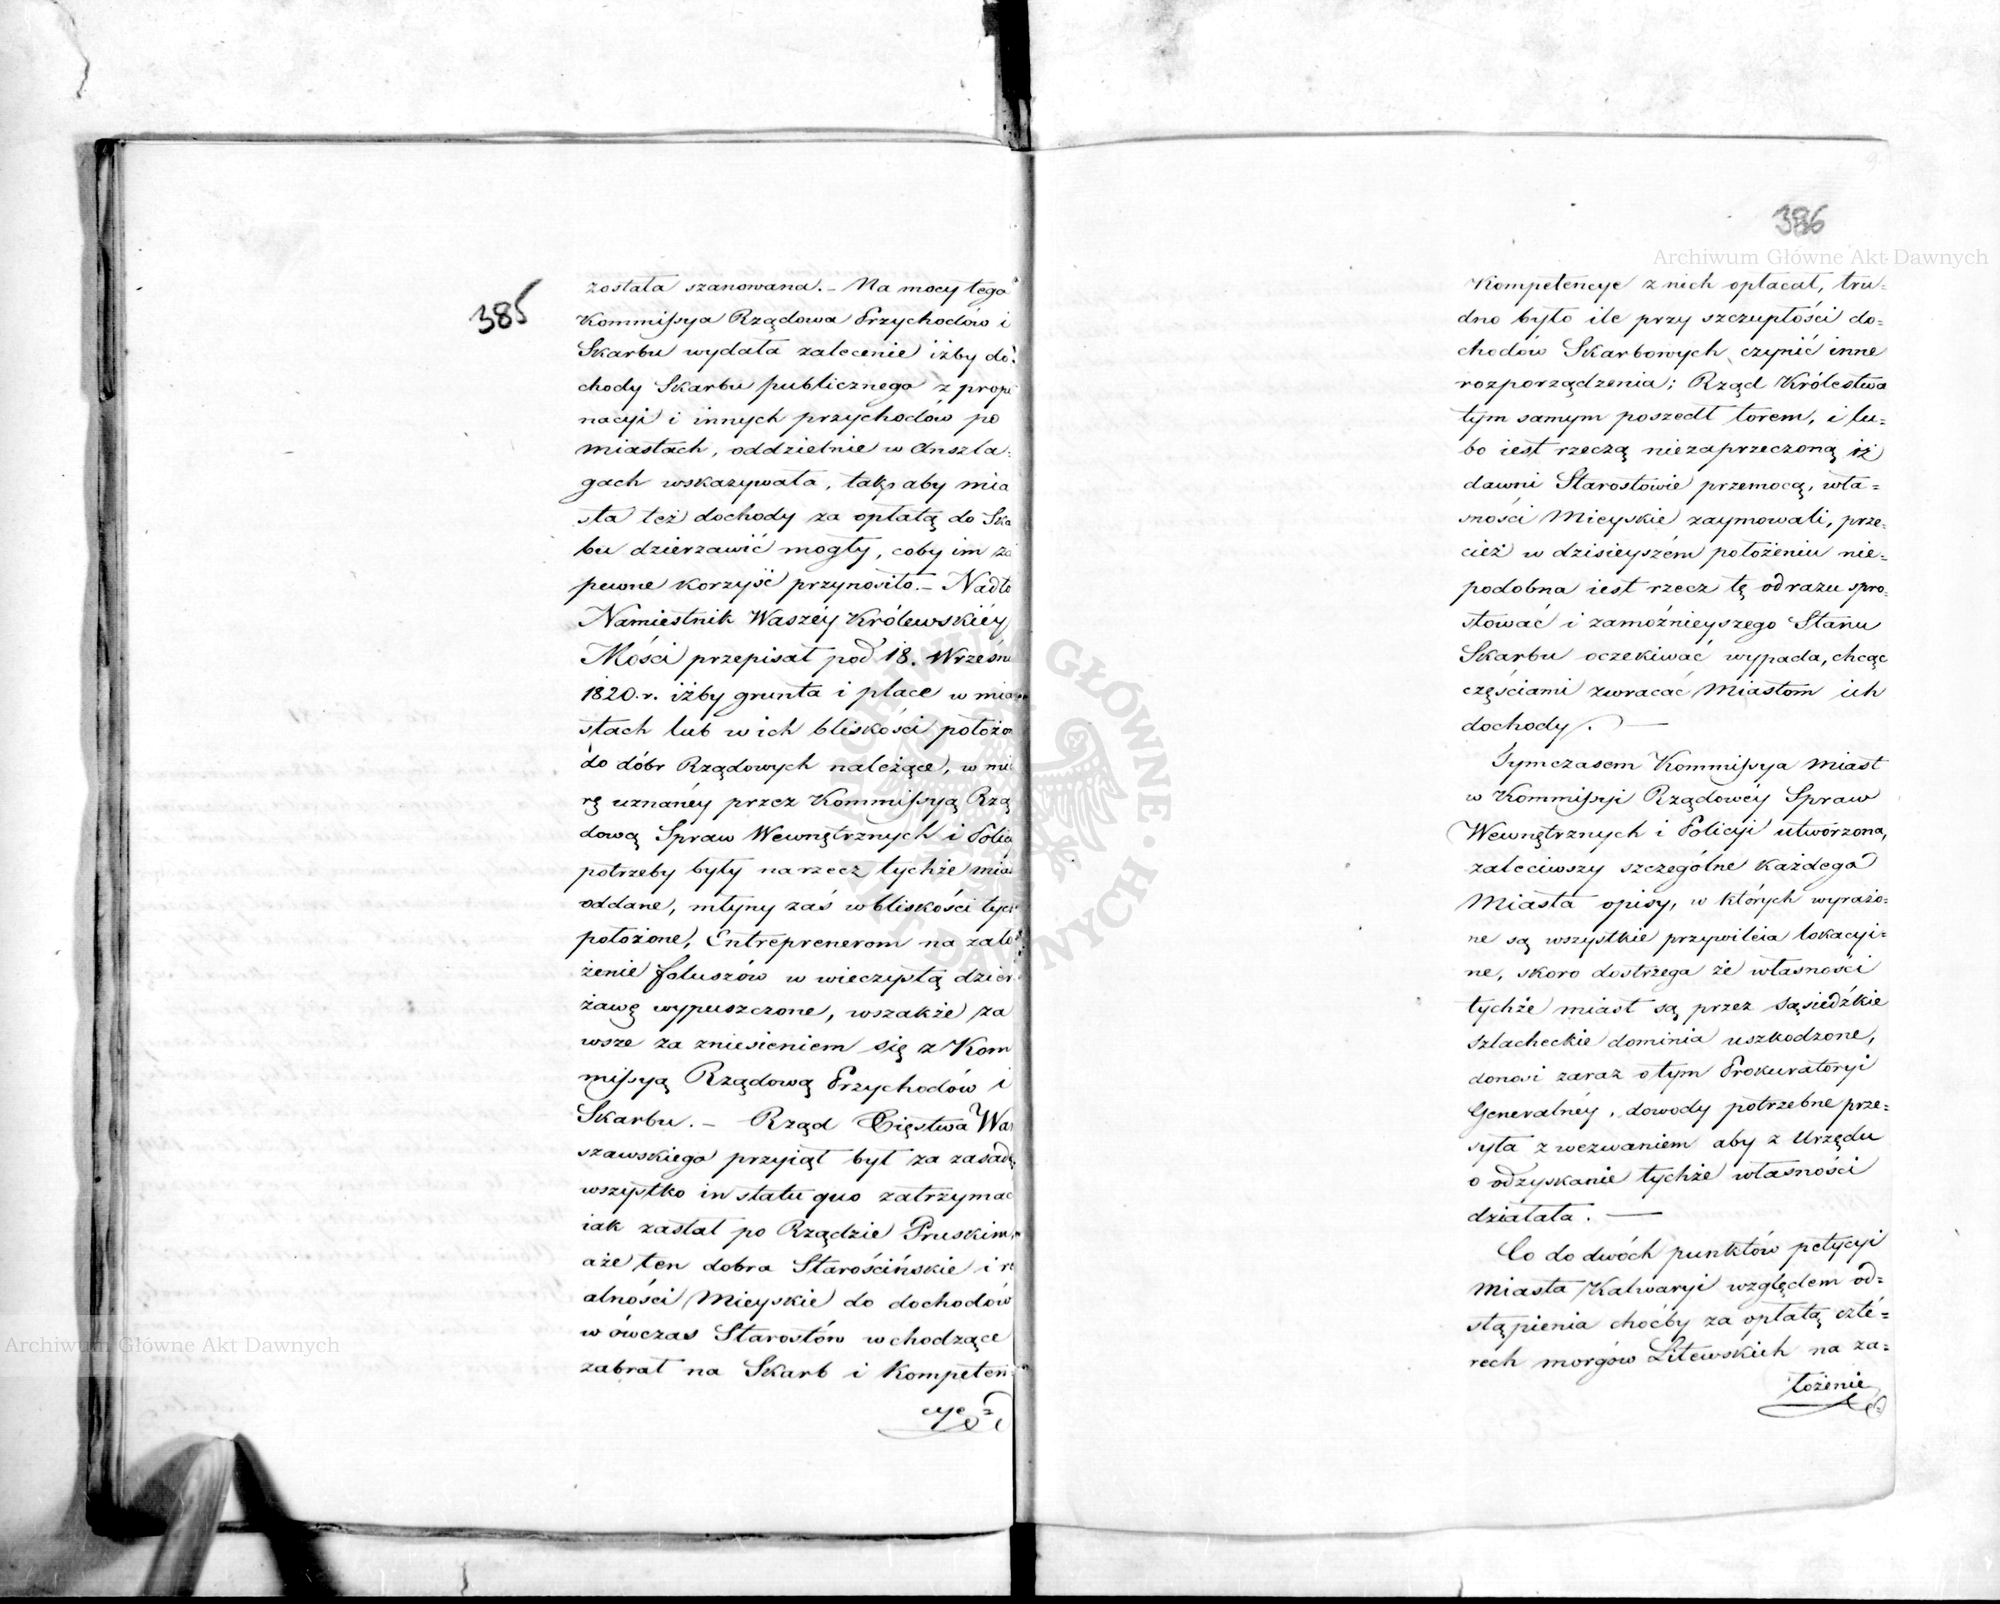 385
została szanowana. – Na mocy tego
Kommissya Rządowa Przychodów i
Skarbu wydała zalecenie iżby do-
chody Skarbu publicznego z propi
nacyi i innych przychodów po
miastach, oddzielnie w Anszla-
gach wskazywała, tak, aby mia
sta też dochody za opłatą do Ska
bu dzierzawić mogły, coby im za
pewne korzyść przynosiło. – Nadto
Namiestnik Waszéy Królewskiéy
Mości przepisał pod 18. Wrześni
1820. r. iżby grunta i place w mia
stach lub w ich bliskości położon
do dóbr Rządowych należące, w mia
rę uznanéy przez Kommissyą Rzą
dową Spraw Wewnętrznych i Policy
potrzeby były na rzecz tychże mias
oddane, młyny zaś w bliskości tych
położone, Entreprenerom na zało
żenie foluszów w wieczystą dzier
żawę wypuszczone, wszakże za
wsze za zniesieniem się z Kom
missyą Rządową Przychodów i
Skarbu. – Rząd Xięstwa War
szawskiego przyiął był za zasadę
wszystko in statu quo zatrzymać
iak zastał po Rządzie Pruskim,
aże ten dobra Starościńskie i re
alności Mieyskie do dochodów
w ówczas Starostów wchodzące
zabrał na Skarb i Kompeten-
cye
386
Archiwum Główne Akt Dawnych
Kompetencye z nich opłacał, tru-
dno było ile przy szczupłości do-
chodów Skarbowych czynić inne
rozporządzenia; Rząd Królestwa
tym samym poszedł torem, i lu-
bo iest rzeczą niezaprzeczoną iż
dawni Starostowie przemocą, wła-
sności Mieyskie zaymowali, prze-
cież w dzisieyszém położeniu nie-
podobna iest rzecz tę odrazu spro-
stować i zamożnieyszego Stanu
Skarbu oczekiwać wypada, chcąc
częściami zwracać Miastom ich
dochody. —
Tymczasem Kommissya Miast
w Kommissyi Rządowéy Spraw
Wewnętrznych i Policyi utworzona,
zaleciwszy szczególne każdego
Miasta opisy, w których wyrażo-
ne są wszystkie przywileia lokacyi-
ne, skoro dostrzega że własności
tychże miast są przez sąsiedzkie
szlacheckie dominia uszkodzone,
donosi zaraz o tym Prokuratoryi
Generalnéy, dowody potrzebne prze-
syła z wezwaniem aby z Urzędu
o odzyskanie tychże własności
działała. —
Co do dwóch punktów petycyi
Miasta Kalwaryi względem od-
stąpienia choćby za opłatą czte-
rech morgów Litewskich na za-
łożenie
Archiwum Główne Akt Dawnych
ARCHIWUM GŁÓWNE AKT DAWNYCH